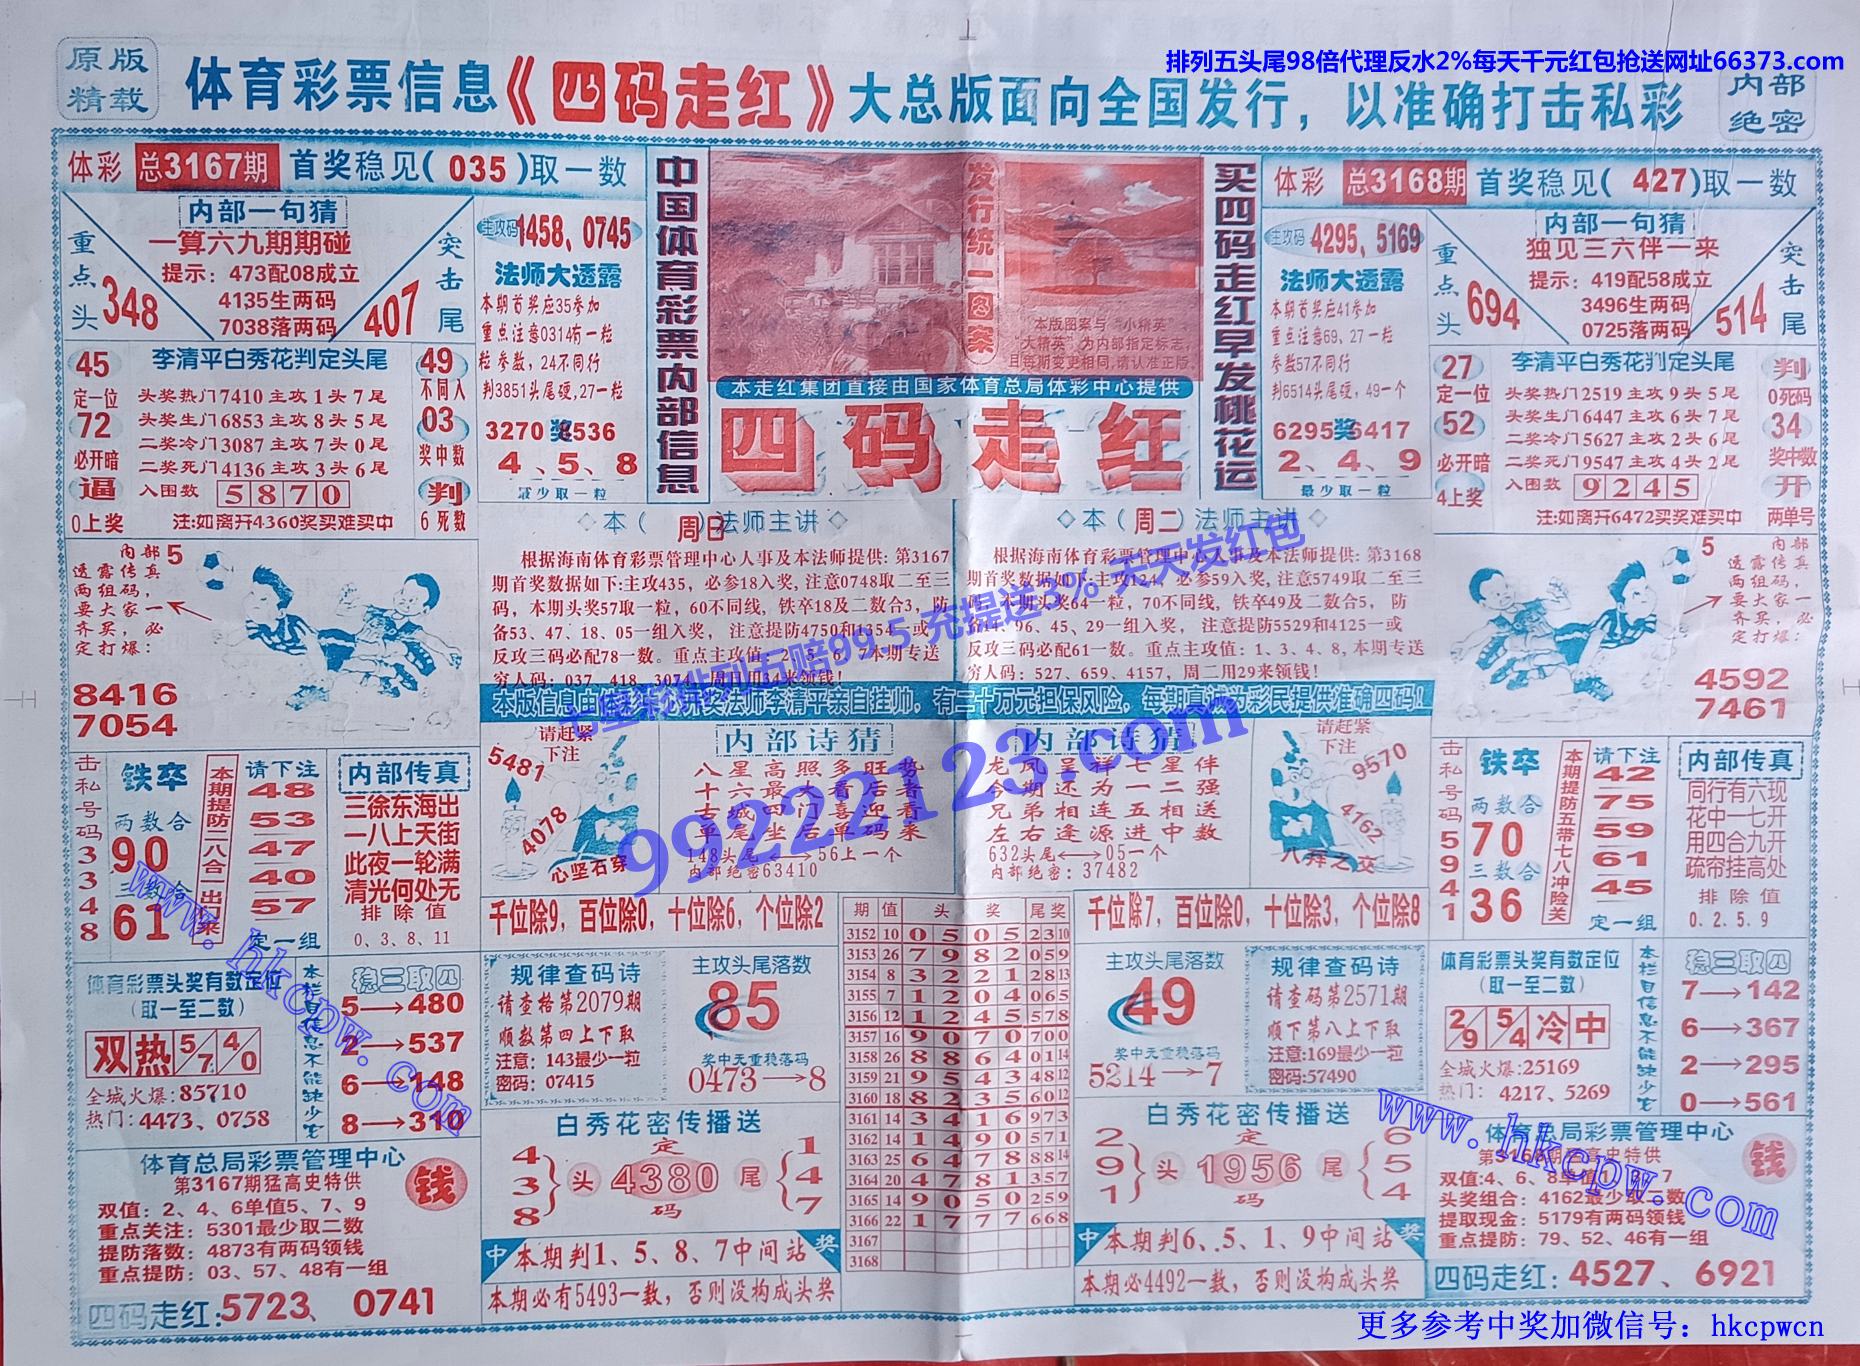 排列五头尾98倍代理反水2%每天千元红包抢送网址66373.com
原版
精载
体育彩票信息《四码走红》大总版面向全国发行，以准确打击私彩
内部
绝密
体彩 总3167期 首奖稳见(035)取一数
内部一句猜
一算六九期期碰
提示：473配08成立
4135生两码
7038落两码
重点头
348
突击尾
407
主攻码 1458、0745
法师大透露
本期首奖应35参加
重点注意0314有一粒
粒参数，24不同行
判3851头尾硬，27一粒
3270奖8536
4、5、8
最少取一粒
李清平白秀花判定头尾
头奖热门7410主攻1头7尾
头奖生门6853主攻8头5尾
二奖冷门3087主攻7头0尾
二奖死门4136主攻3头6尾
入围数 5870
注:如离开4360奖买难买中
45
定一位
72
必开暗
逼
0上奖
49
不同入
03
奖中数
判
6死数
中国体育彩票内部信息
发行统一图案
本版图案与“小精英”
“大精英”为内部指定标志，
且每期变更相同，请认准正版
本走红集团直接由国家体育总局体彩中心提供
四码走红
买四码走红早发桃花运
体彩 总3168期 首奖稳见(427)取一数
内部一句猜
独见三六伴一来
提示：419配58成立
3496生两码
0725落两码
重点头
694
突击尾
514
主攻码 4295、5169
法师大透露
本期首奖应41参加
重点注意69、27一粒
参数57不同行
判6514头尾硬，49一个
6295奖6417
2、4、9
最少取一粒
李清平白秀花判定头尾
头奖热门2519主攻9头5尾
头奖生门6447主攻6头7尾
二奖冷门5627主攻2头6尾
二奖死门9547主攻4头2尾
入围数 9245
注:如离开6472买奖难买中
27
定一位
52
必开暗
4上奖
判
0死码
34
奖中数
开
两单号
内部
透露传真
两组码，
要大家一
齐买，必
定打爆：
5
8416
7054
◇本（周日）法师主讲◇
根据海南体育彩票管理中心人事及本法师提供：第3167
期首奖数据如下:主攻435，必参18入奖，注意0748取二至三
码，本期头奖57取一粒，60不同线，铁卒18及二数合3，防
备53、47、18、05一组入奖，注意提防4750和1354一或
反攻三码必配78一数。重点主攻值：2、5、6、7本期专送
穷人码：037、418、3074，周日用34来领钱！
◇本（周二）法师主讲◇
根据海南体育彩票管理中心人事及本法师提供：第3168
期首奖数据如下:主攻124，必参59入奖，注意5749取二至三
码，本期头奖64一粒，70不同线，铁卒49及二数合5，防
备14、96、45、29一组入奖，注意提防5529和4125一或
反攻三码必配61一数。重点主攻值：1、3、4、8，本期专送
穷人码：527、659、4157，周二用29来领钱！
内部
透露传真
两组码，
要大家一
齐买，必
定打爆：
5
4592
7461
七星彩排列五赔99.5 充提送3% 天天发红包
99222123.com
击私号码33348
铁卒
两数合
90
三数合
61
本期提防二八合一出奖
请下注
48
53
47
40
57
定一组
内部传真
三徐东海出
一八上天街
此夜一轮满
清光何处无
排除值
0、3、8、11
5481
请赶紧
下注
4078
心坚石穿
内部诗猜
八星高照多旺势
十六最大看后者
古城四门喜迎看
单尾坐后单码来
148头尾←→56上一个
内部绝密63410
内部诗猜
龙凤呈祥七星伴
今期还为一二强
兄弟相连五相送
左右逢源进中数
632头尾←→05一个
内部绝密:37482
请赶紧
下注
9570
4162
八拜之交
击私号码55941
铁卒
两数合
70
三数合
36
本期提防五带七八冲险关
请下注
42
75
59
61
45
定一组
内部传真
同行有六现
花中一七开
用四合九开
疏帘挂高处
排除值
0.2.5.9
千位除9，百位除0，十位除6，个位除2
千位除7，百位除0，十位除3，个位除8
期 值 头奖 尾奖
3152 10 0505 23 10
3153 26 7982 059
3154 8 3221 28 13
3155 7 1204 065
3156 12 1245 578
3157 16 9070 700
3158 26 8864 01 14
3159 21 9543 48 12
3160 18 8235 60 12
3161 14 3416 973
3162 14 1490 571
3163 25 6478 88 14
3164 20 4781 357
3165 14 9050 259
3166 22 1777 668
3167
3168
体育彩票头奖有数定位
(取一至二数)
双热 5/7 4/0
全城火爆:85710
热门：4473、0758
本栏目信息不能缺少它
稳三取四
5→480
2→537
6→148
8→310
规律查码诗
请查格第2079期
顺数第四上下取
注意：143最少一粒
密码：07415
主攻头尾落数
85
奖中无重稳落码
0473→8
主攻头尾落数
49
奖中无重稳落码
5214→7
规律查码诗
请查码第2571期
顺下第八上下取
注意:169最少一粒
密码:57490
体育彩票头奖有数定位
(取一至二数)
2/9 5/4 冷中
全城火爆:25169
热门：4217、5269
本栏目信息不能缺少它
稳三取四
7→142
6→367
2→295
0→561
体育总局彩票管理中心
第3167期猛高史特供
双值：2、4、6单值5、7、9
重点关注：5301最少取二数
提防落数：4873有两码领钱
重点提防：03、57、48有一组
钱
四码走红:5723、0741
白秀花密传播送
438
头
定
4380
码
尾
147
中 本期判1、5、8、7中间站 奖
本期必有5493一数，否则没构成头奖
白秀花密传播送
291
头
定
1956
码
尾
654
中 本期判6、5、1、9中间站 奖
本期必4492一数，否则没构成头奖
体育总局彩票管理中心
双值:4、6、8单值1、
头奖组合：4162最少取二数
提取现金：5179有两码领钱
重点提防：79、52、46有一组
钱
四码走红:4527、6921
www.hkcpw.com
www.hkcpw.com
更多参考中奖加微信号：hkcpwcn